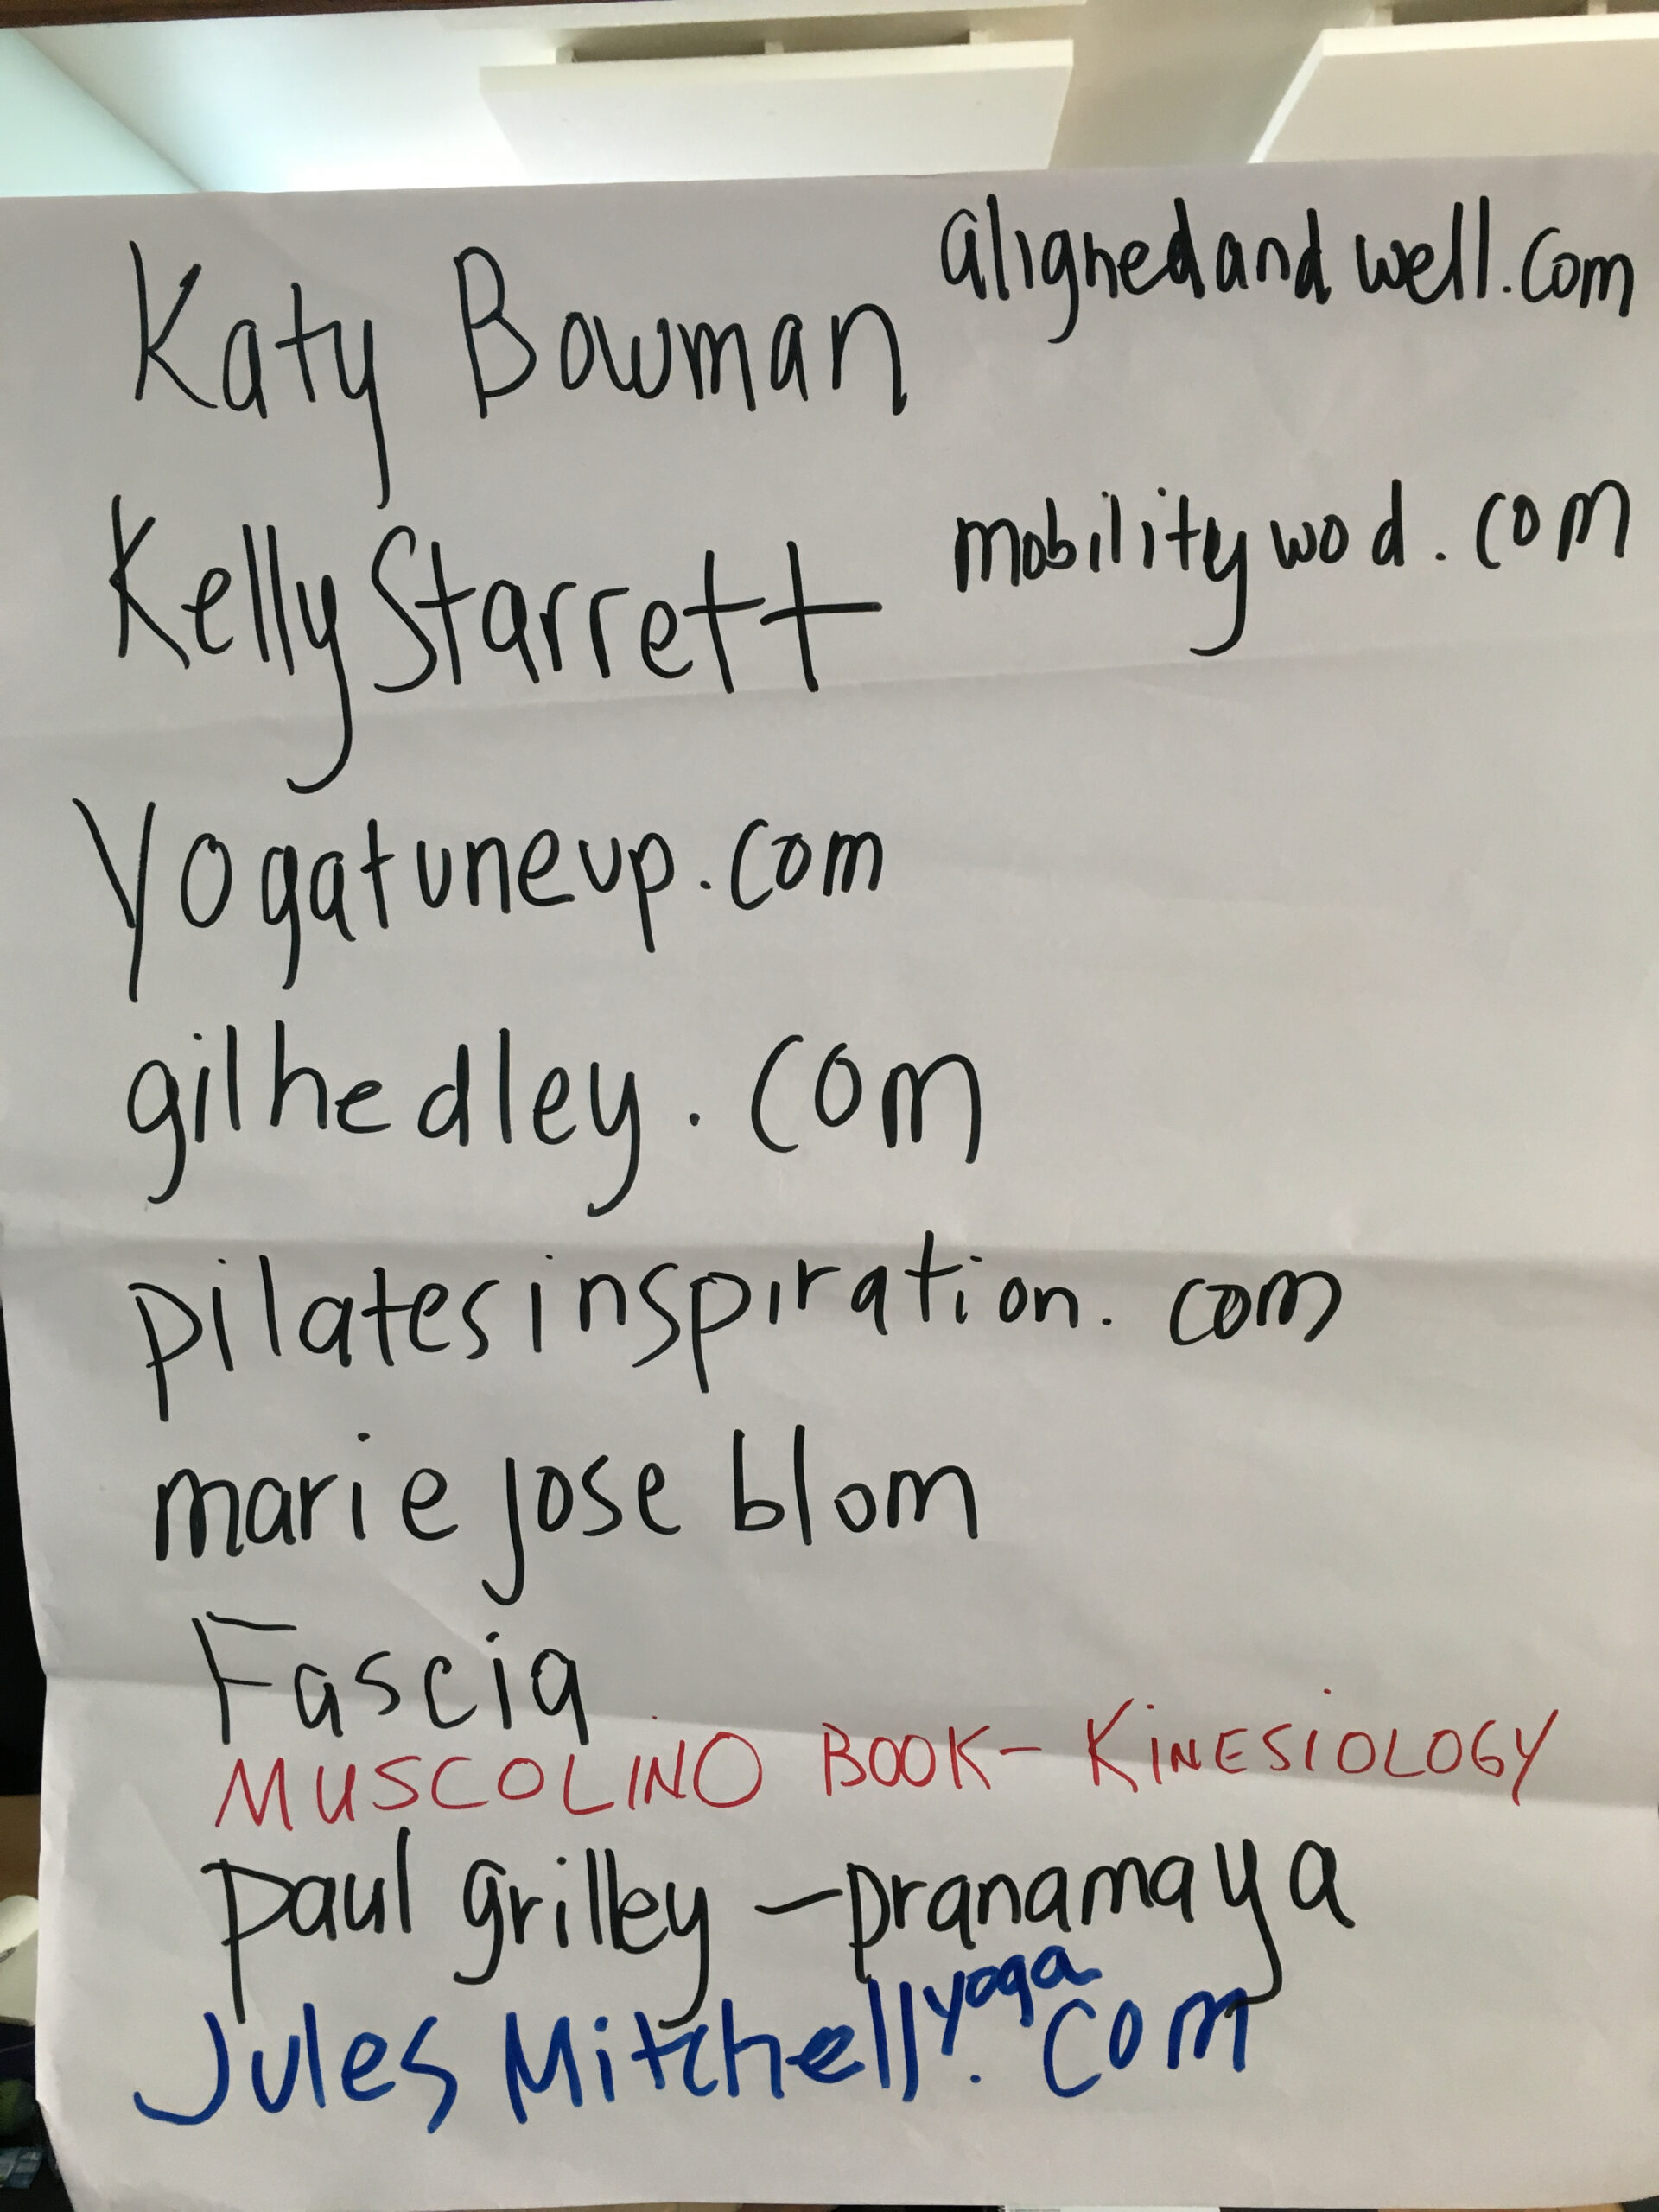 Katy Bowman alignedandwell.com
Kelly Starrett mobilitywod.com
Yogatuneup.com
gilhedley.com
pilatesinspiration.com
marie jose blom
Fascia
MUSCOLINO BOOK - KINESIOLOGY
paul grilley - pranamaya
Jules Mitchell yoga.com